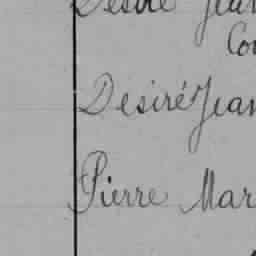 Desiré Jean
Co
Desiré Jean
Pierre Mar